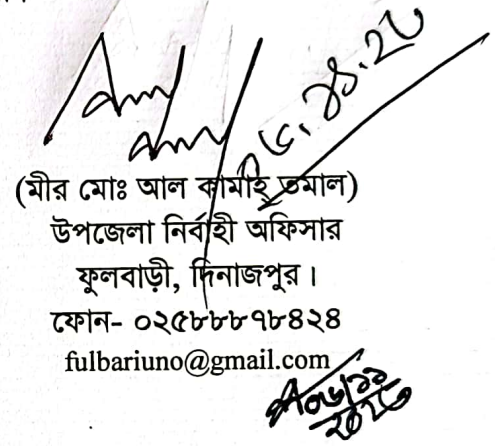 (মীর মোঃ আল কামাহ্ তমাল)
উপজেলা নির্বাহী অফিসার
ফুলবাড়ী, দিনাজপুর।
ফোন- ০২৫৮৮৮৭৮৪২৪
fulbariuno@gmail.com